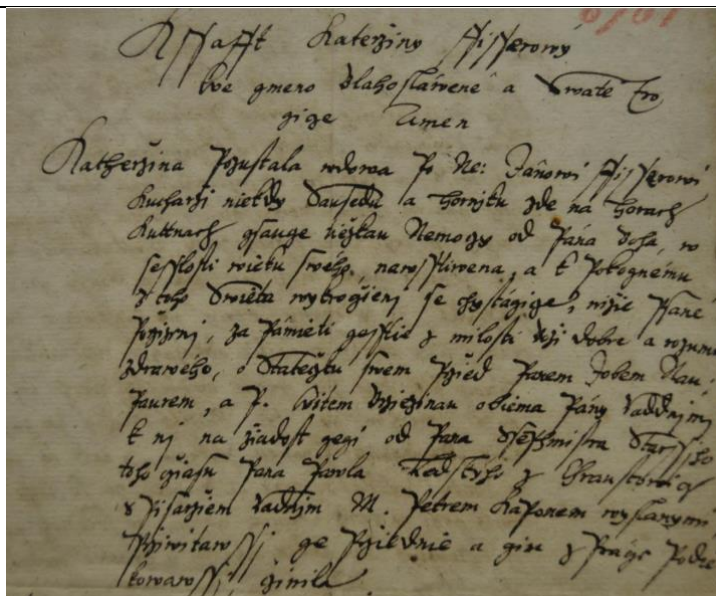 Kssafft Katerziny Fisserowy
We gmeno Blahoslawene a Swate Tro
gige Amen
Katherzina Pozustala wdowa Po Ne: Janowi Fisserowi
Kucharzi niekdy Sausedu a hornjku zde na Horach
Kuttnach gsauge tiezkau Nemogy od Pana Boha, w
sesslosti wieku sweho, nawsstiwena, a k Pokognému
z toho Swieta wykrogieni se chystagige, nize Psane
Porzizenj, za Pamieti gesstie z milosti Bozi dobre a rozumu
zdraweho, o Stateczku swem Przed Panem Jobem Nau
Paurem, a P. Witem Brzezinau obiema Pány Raddnjmj
k nj na ziadost gegi od Pana Ssephmistra Starssiho
toho cziasu Pana Pawla Kadskyho z
a Pisarziem Raddnjm M. Petrem Kaponem wyslanymi
Przywitawssj ge Przikladnie a gim z Prage Podie
kowawssj, cinila